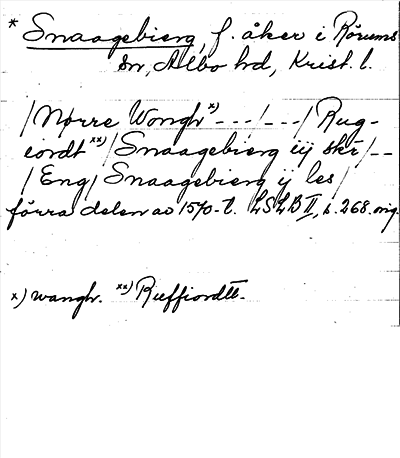 * Snaagebierg, f. åker i Rörums
sn, Albo hd, Krist. l.
/Nørre Wongh x) ---/---/ Rug-
iordt xx)/ Snaagebierg iij skr/--
/Eng/ Snaagebierg ij les/
förra delen av 1570-t. LSLB II, s. 268. orig.
x) wangh. xx) Rueffiordtt.